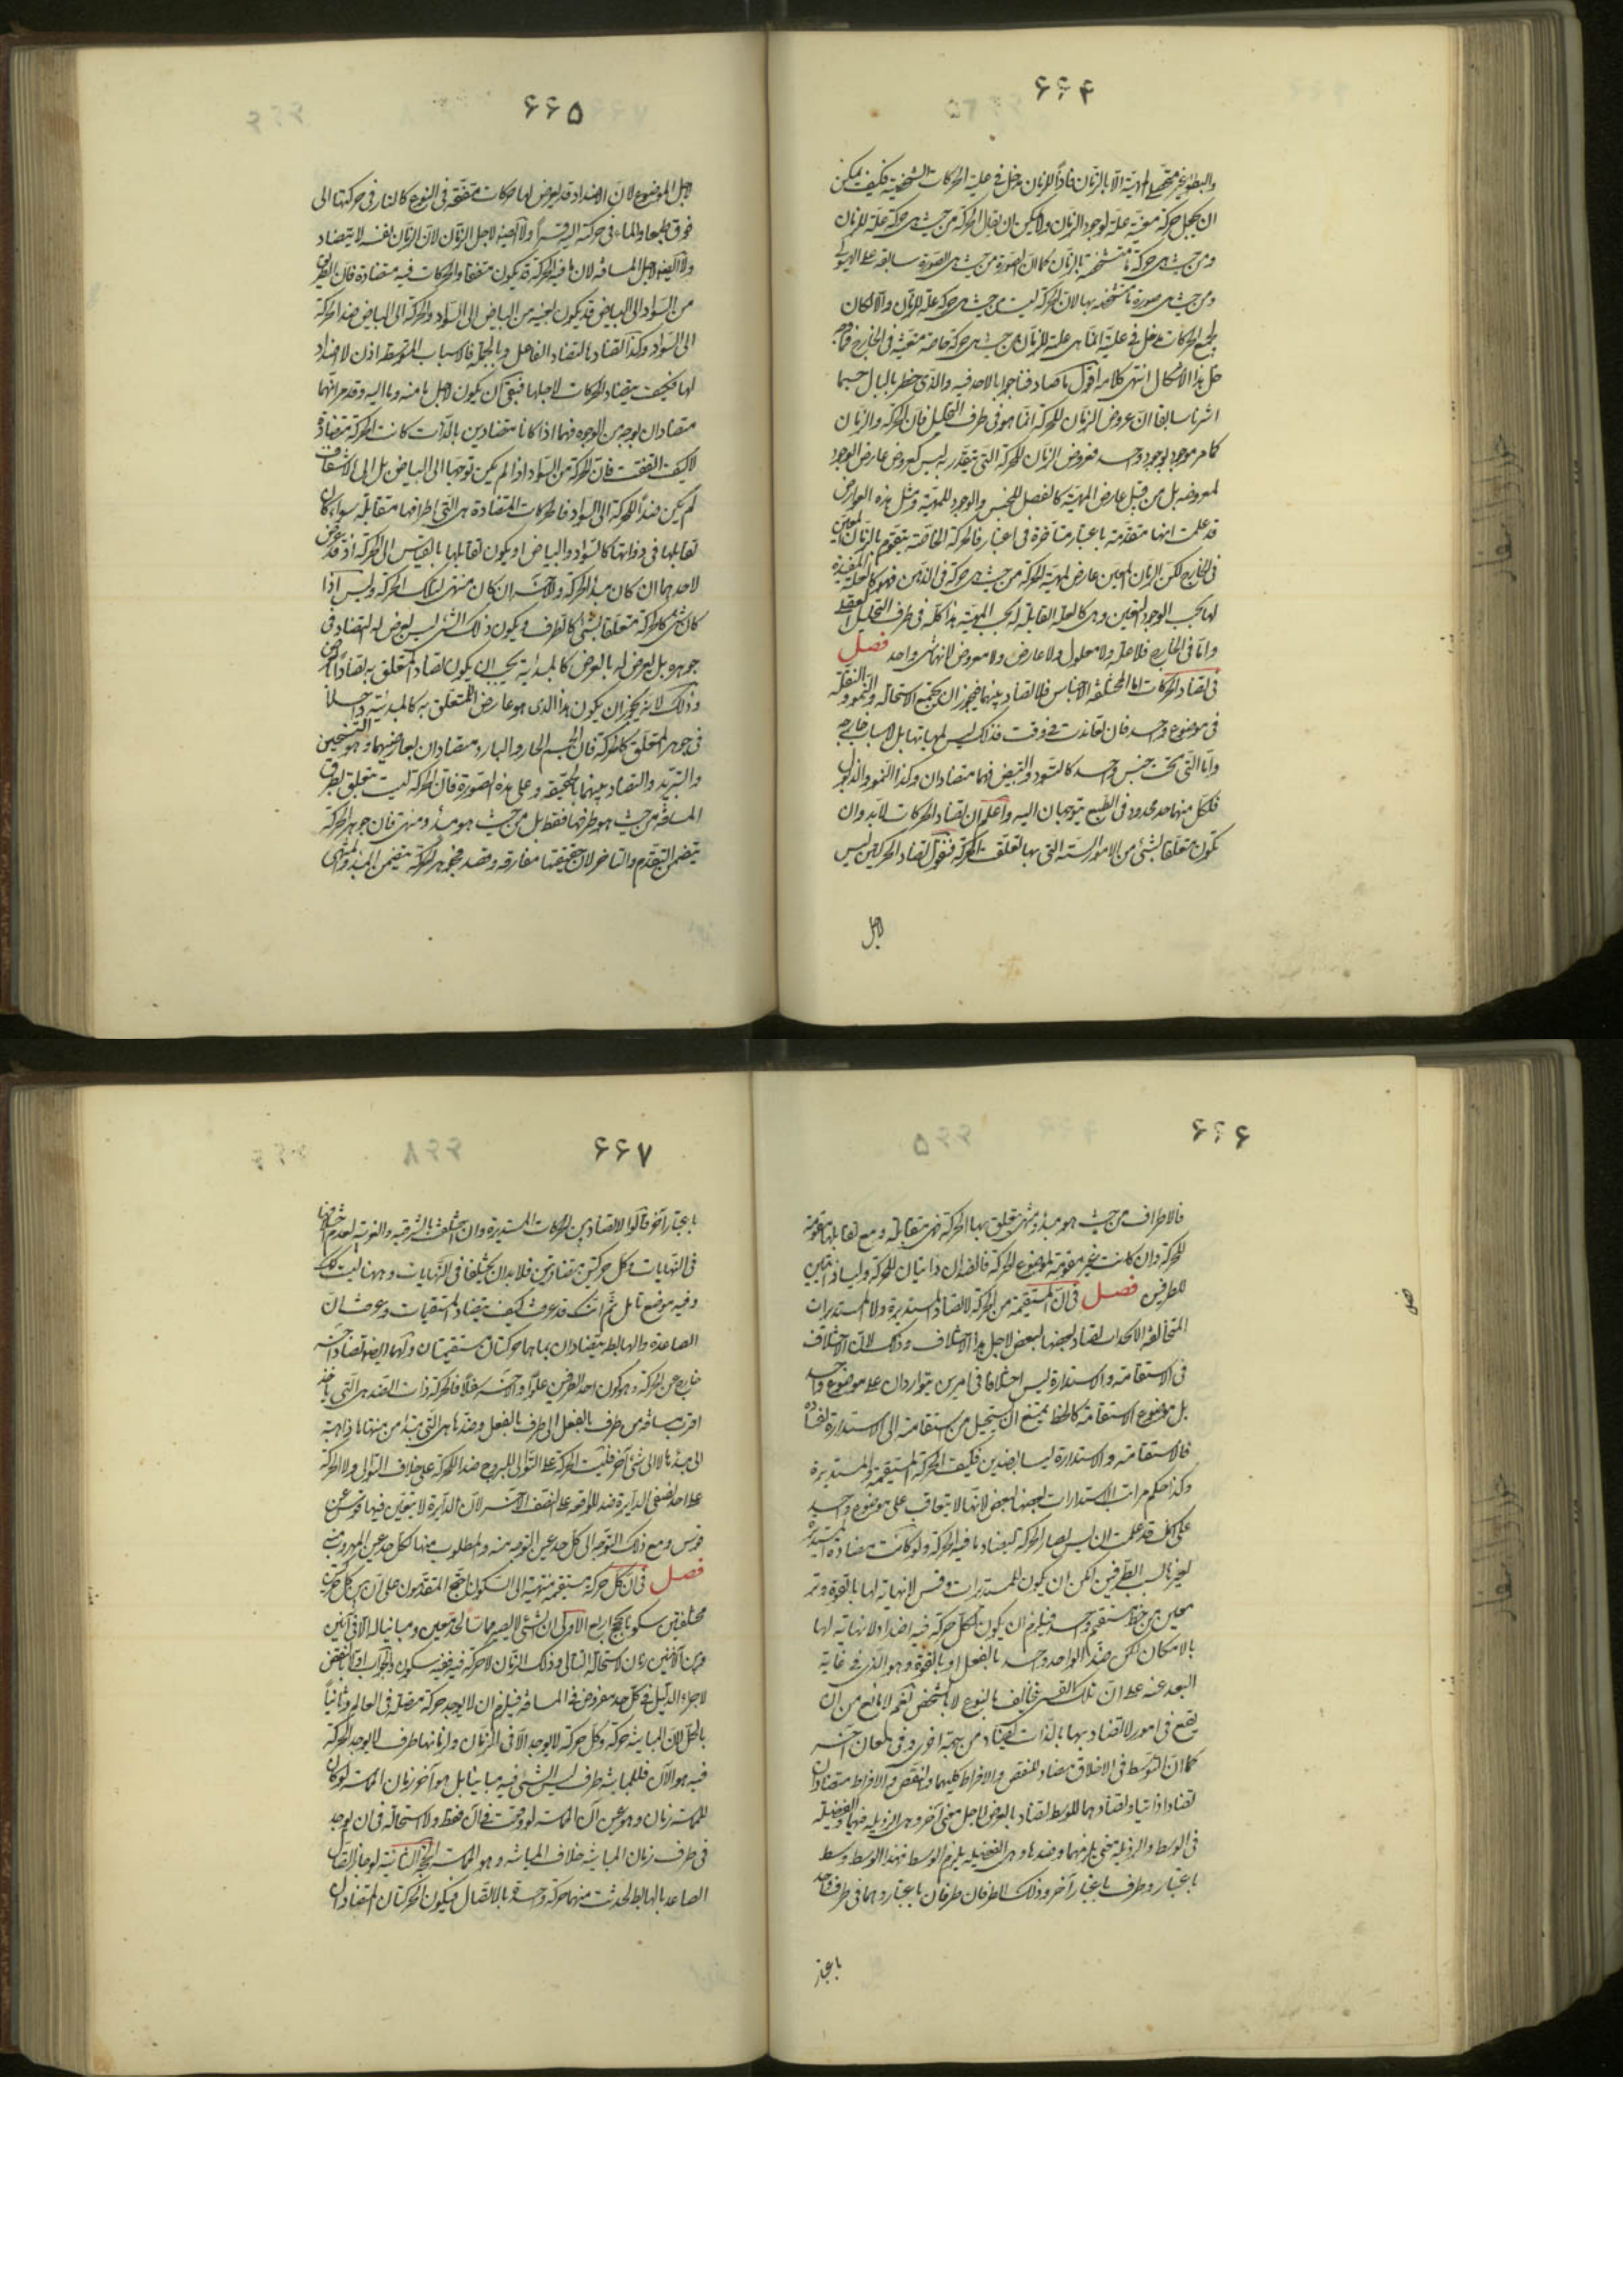 ۶۶۴
والبطؤ غير متحصلة المهية الا بالزمان فاذا للزمان مدخل فى علية الحركات الشخصية فكيف يمكن
ان يجعل حركة معينة علة لوجود الزمان ولا يمكن ان يقال الحركة من حيث هى حركة علة للزمان
ومن حيث هى حركة ما متشخصة بالزمان كما ان الصورة من حيث هى الصورة سابقة على الهيولى
ومن حيث هى صورة ما متشخصة بها لان الحركة ليست من حيث هى حركة علة للزمان والا لكان
لجميع الحركات مدخل فى علية انما هى علة للزمان من حيث هى حركة خاصة متعينة فى الخارج فما وجه
حل هذا الاشكال انتهى كلامه اقول ما صادفنا جوابا لاحد فيه والذى خطر بالبال حسبما
اشرنا سابقا ان عروض الزمان للحركة انما هو فى ظرف التحليل فان الحركة والزمان
كما مر موجود بوجود واحد فعروض الزمان للحركة التى تتقدر به ليس كعروض عارض الوجود
لمعروضه بل من قبيل عارض المهية كالفصل للجنس والوجود للمهية ومثل هذه العوارض
قد علمت انها متقدمة باعتبار متاخرة فى اعتبار فالحركة الخاصة يتقوم بالزمان المعين
فى الخارج لكن الزمان المعين عارض لمهية الحركة من حيث هى حركة فى الذهن فهو كالعلة المفيدة
لها بحسب الوجود والتعين وهى كالعلة القابلة له بحسب المهية هذا كله فى ظرف التحليل العقلى
واما فى الخارج فلا علة ولا معلول ولا عارض ولا معروض لانهما شى واحد فصل
فى تضاد الحركات اما المختلفة الاجناس فلا تضاد بينهما فيجوز ان يجتمع الاستحالة والنمو والنقلة
فى موضوع واحد فان تعاندت فى وقت فذلك ليس لمهياتها بل لاسباب خارجة
واما التى تحت جنس واحد كالتسود والتبيض فهما متضادان وكذا النمو والذبول
فلكل منهما حد محدود فى الطبع يتوجهان اليه واعلم ان تضاد الحركات لابد وان
تكون متعلقا بشئ من الامور الستة التى بها تعلقت الحركة فنقول تضاد الحركتين ليس
لاجل
۶۶۵
لاجل الموضوع لان الاضداد قد يعرض لها حركات متفقة فى النوع كالنار فى حركتها الى
فوق طبعا والماء فى حركته اليه قسرا ولا ايضا لاجل الزمان لان الزمان لنفسه لا يتضاد
ولا ايضا لاجل المسافة لان ما فيه الحركة قد يكون متفقا والحركات فيه متضادة فان الطريق
من السواد الى البياض قد يكون بعينه من البياض الى السواد والحركة الى البياض ضد الحركة
الى السواد وكذا القضاء بالتضاد الفاعل وبالجملة فالاسباب المتوسطة اذن لا اضداد
لها فكيف يتضاد الحركات لاجلها فبقى ان يكون لاجل ما منه وما اليه وقد مر انهما
متضادان بوجه من الوجوه فهما اذا كانا متضادين بالذات كانت الحركة متضادة
لا كيف اتفقت فان الحركة من السواد اذا لم يكن توجها الى البياض بل الى الاشفاف
لم يكن ضدا للحركة الى السواد فالحركات المتضادة هى التى اطرافها متقابلة سواء كان
تقابلها فى ذواتها كالسواد والبياض او يكون تقابلها بالقياس الى الحركة اذ قد عرض
لاحدهما ان كان مبدا لحركة والاخر ان كان منتهى لتلك الحركة وليس اذا
كان شى كالحركة متعلقا بشئ كالطرف ويكون ذلك الشئ ليس يعرض له التضاد فى
جوهره بل يعرض له بالعرض كالمبدئية يجب ان يكون تضاد المتعلق به تضادا بالعرض
وذلك لانه يجوز ان يكون هذا الذى هو عارض للمتعلق به كالمبدئية داخلا
فى جوهر المتعلق كالحركة فان الجسم الحار والبارد متضادان لعارضيهما وهو التسخين
والتبريد والتضاد بينهما بالحقيقة وعلى هذه الصورة فان الحركة ليست تتعلق بطرف
المسافة من حيث هو طرفها فقط بل من حيث هو مبدأ ومنتهى فان جوهر الحركة
يتضمن التقدم والتاخر لان حقيقتها مفارقة وقصد فجوهر الحركة يتضمن المبدأ والمنتهى
۶۶۶
فالاطراف من حيث هو مبدأ ومنتهى تتعلق بها الحركة فهى متقابلة ومع تقابلها مقومة
للحركة وان كانت غير مقومة لموضوع الحركة فالضدان ذاتيان للحركة وليسا ذاتيين
للطرفين فصل فى ان المستقيمة من الحركة لا تضاد المستديرة ولا المستديرات
المتخالفة الانحداب تضاد بعضها لبعض لاجل هذا الاختلاف وذلك لان الاختلاف
فى الاستقامة والاستدارة ليس اختلافا فى امرين يتواردان على موضوع واحد
بل موضوع الاستقامة كالخط يمتنع ان يستحيل من استقامته الى الاستدارة لفساده
فالاستقامة والاستدارة ليسا بضدين فكيف الحركة المستقيمة والمستديرة
وكذا حكم مراتب الاستدارات بعضها لبعض لانها لا يتعاقب على موضوع واحد
على انك قد علمت ان ليس تضاد الحركة لتضاد ما فيه الحركة ولو كانت متضادة المستديرة
لغيرها لسبب الطرفين لكن ان يكون للمستديرات وقسى لا نهاية لها بالقوة وتر
معين من خط مستقيم واحد فيلزم ان يكون لكل حركة فيه اضداد لا نهاية لها
بالامكان لكن ضد الواحد واحد بالفعل او بالقوة وهو الذى فى غاية
البعد عنه على ان تلك القسى تخالف بالنوع لا بالشخص نعم لا مانع من ان
يقع فى امور لا تضاد بها بالذات تضاد من جهة اخرى وفى معان اخر
كما ان التوسط فى الاخلاق مضاد للنقص والافراط كليهما والنقص والافراط متضادان
تضادا ذاتيا وتضادهما للوسط تضاد بالعرض لاجل معنى آخر وهى الرذيلة فيهما والفضيلة
فى الوسط والرذيلة معنى يلزمهما وضدها وهى الفضيلة يلزم الوسط فهذا الوسط وسط
باعتبار وطرف باعتبار آخر وذلك الطرفان طرفان باعتبار وهما فى طرف واحد
باعتبار
فصل
۶۶۷
باعتبار آخر قالوا لا تضاد بين الحركات المستديرة وان اختلفت بالشرقية والغربية لعدم اختلافها
فى النهايات وكل حركتين متضادتين فلابد ان يختلفا فى النهايات وههنا ليست كذلك
وفيه موضع تامل ثم انك قد عرفت كيف يتضاد المستقيمات وعرفت ان
الصاعدة والهابطة يتضادان بما هما حركتان مستقيمتان ولهما ايضا تضاد آخر
خارج عن الحركة وهو كون احد الطرفين علوا والاخر سفلا فالحركة ذات الضد هى التى ياخذ
اقرب مسافة من طرف بالفعل الى طرف بالفعل وضدها هى التى يبتدأ من منتهاها ذاهبة
الى مبدئها لا الى شئ آخر فليست الحركة على التوالى للبروج ضد الحركة على خلاف التوالى ولا الحركة
على احد نصفى الدائرة ضد للواقعة على النصف الاخر لان الدائرة لا يتعين فيها قوس عن
قوس ومع ذلك التوجه الى كل حد عين التوجه منه والمطلوب منها لكل حد عين المهروب منه
فصل فى ان كل حركة مستقيمة منتهية الى السكون احتج المتقدمون على ان بين كل حركتين
مختلفتين سكونا بحجج اربع الاولى ان الشئ لا يصير مماسا لحد معين ومباينا له الا فى آنين
وبين الآنين زمان لاستحالة التتالى وذلك الزمان لا حركة فيه ففيه سكون والجواب اولا بالنقض
لاجراء الدليل فى كل حد مفروض فى المسافة فيلزم ان لا يوجد حركة متصلة فى العالم وثانيا
بالحل لان المباينة حركة وكل حركة لا يوجد الا فى الزمان ولزمانها طرف لا يوجد الحركة
فيه هو الآن فللمباينة طرف ليس الشئ فيه مباينا بل هو آخر زمان المماسة لو كان
للمماسة زمان وهو عين آن المماسة لو وقعت فى آن فقط ولا استحالة فى ان يوجد
فى طرف زمان المباينة خلاف المباينة وهو المماسة الحجة الثانية لو جاز اتصال
الصاعد بالهابط لحدثت منهما حركة واحدة بالاتصال فيكون الحركتان المتضادتان